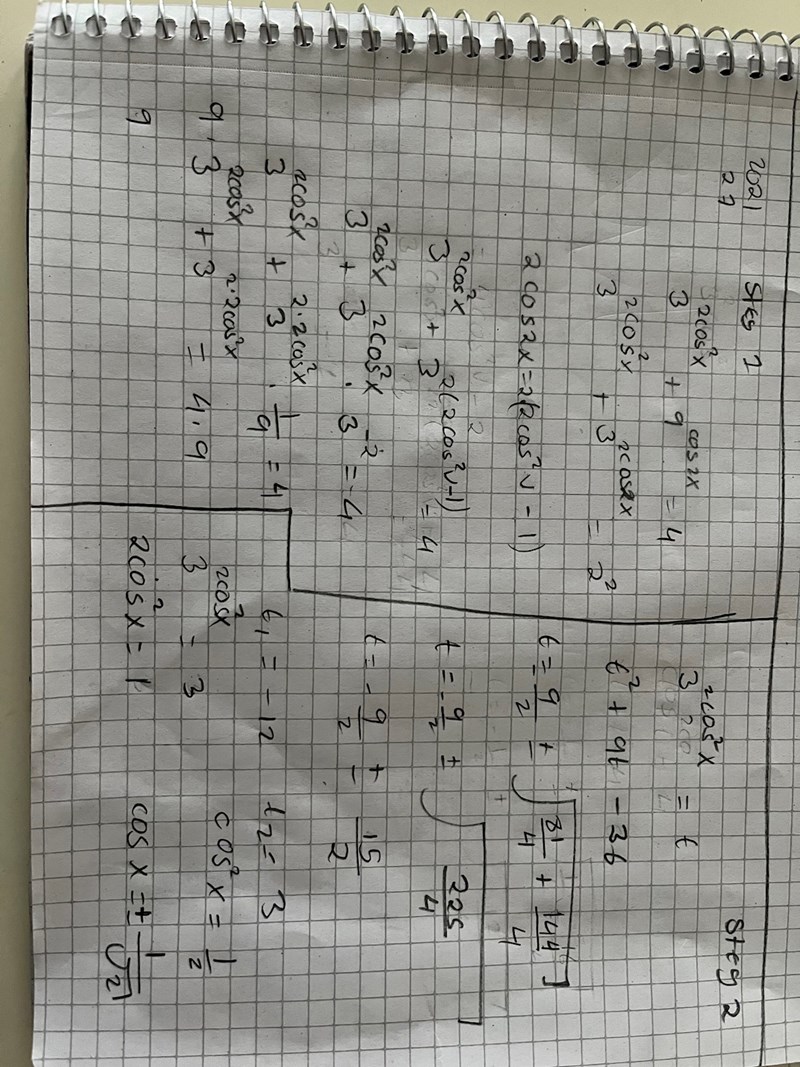 2021
27
Steg 1
3^(2cos²x) + 9^(cos2x) = 4
3^(2cos²x) + 3^(2cos2x) = 2²
2cos2x = 2(2cos²v - 1)
3^(2cos²x) + 3^(2(2cos²v-1)) = 4
3^(2cos²x) + 3^(2cos²x) · 3^(-2) = 4
3^(2cos²x) + 3^(2·2cos²x) · 1/9 = 4
9 · 3^(2cos²x) + 3^(2·2cos²x) = 4·9
9
Steg 2
3^(2cos²x) = t
t² + 9t - 36
t = 9/2 ± √(81/4 + 144/4)
t = -9/2 ± √(225/4)
t = -9/2 ± 15/2
t₁ = -12 t₂ = 3
3^(2cos²x) = 3 cos²x = 1/2
2cos²x = 1 cos x = ± 1/√2